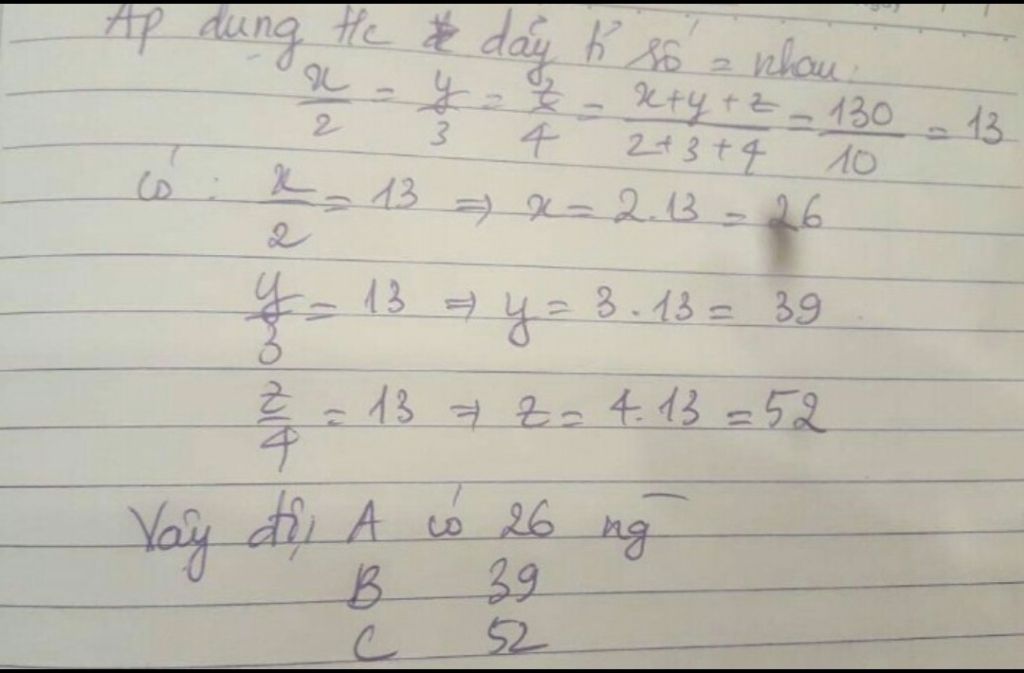 Áp dụng t/c dãy tỉ số = nhau:
x/2 = y/3 = z/4 = x+y+z/2+3+4 = 130/10 = 13
có: x/2 = 13 => x = 2.13 = 26
y/3 = 13 => y = 3.13 = 39
z/4 = 13 => z = 4.13 = 52
Vậy đội A có 26 ng
B 39
C 52